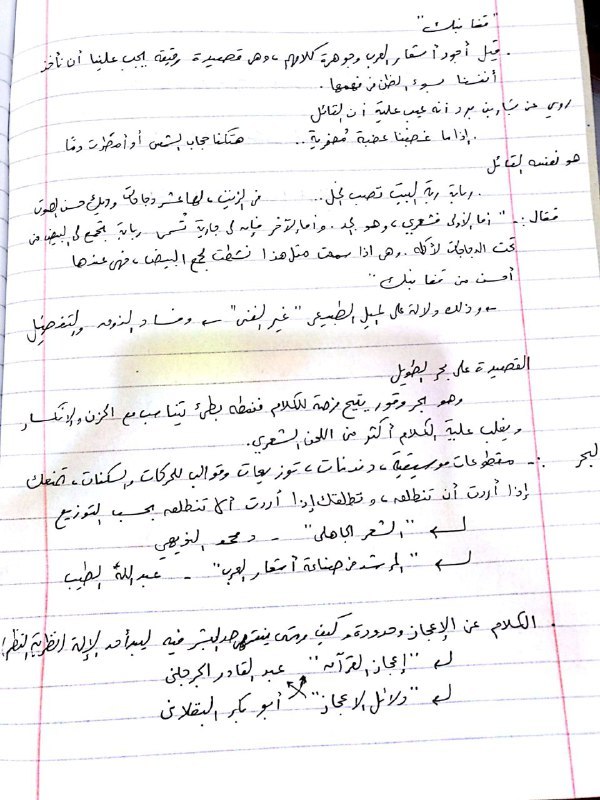 "قفا نبك"
. قيل أجود أشعار العرب وجوهرة كلامهم، وهى قصيدة رقيقة يجب علينا أن نأخذ
أنفسنا بسوء الظن فى فهمها.
روي عن بشار بن برد أنه عيب عليه أن القائل
. إذا ما غضبنا غضبة مُضرية .. هتكنا حجاب الشمس أو أمطرت دمًا
هو نفسه القائل
. ربابة ربة البيت تصب الخل .. فى الزيت، لها عشر دجاجات وديك حسن الصوت
فقال:- "أما الأولى فشعري، وهو جد. وأما الآخر فإنه لى جارية تُسمى ربابة تجمع لى البيض من
تحت الدجاجات لآكله. وهى اذا سمعت مثل هذا نشطت لجمع البيض، فهى عندها
أحسن من قفا نبك"
← وذلك دلالة على الميل الطبيعى "غير الفنى" ← وفساد الذوق والتفضيل
القصيدة على بحر الطويل
وهو بحر وقور يتيح فرصة للكلام فنمطه بطئ يتناسب مع الحزن والإنكسار
ويغلب عليه الكلام أكثر من اللحن الشعري.
البحر :- مقطوعات موسيقية، دندنات، توزيعات وقوالب للحركات والسكنات، تمنعك
إذا أردت أن تنطلق، وتطلقك إذا أردت ألا تنطلق بحسب التوزيع
↵ "الشعر الجاهلى" - د محمد النويهي
↵ "المرشد فى صناعة أشعار العرب" - عبد الله الطيب
. الكلام عن الإعجاز وحدوده وكيف ومتى ينتهى حد البشر فيه ليبدأ حد الإله النظرية النظم
↵ "إعجاز القرآن" عبد القاهر الجرجانى
↵ "دلائل الاعجاز" أبو بكر البقلانى